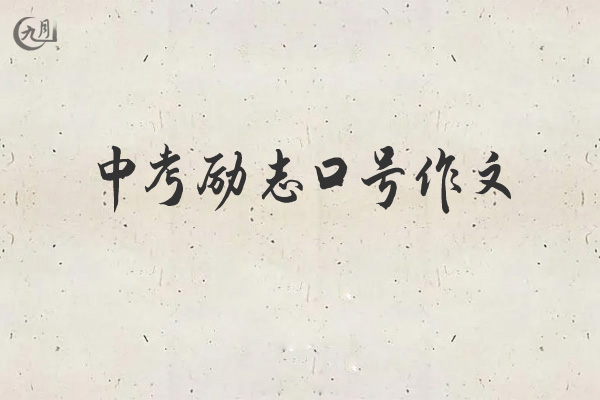 九月
中考励志口号作文